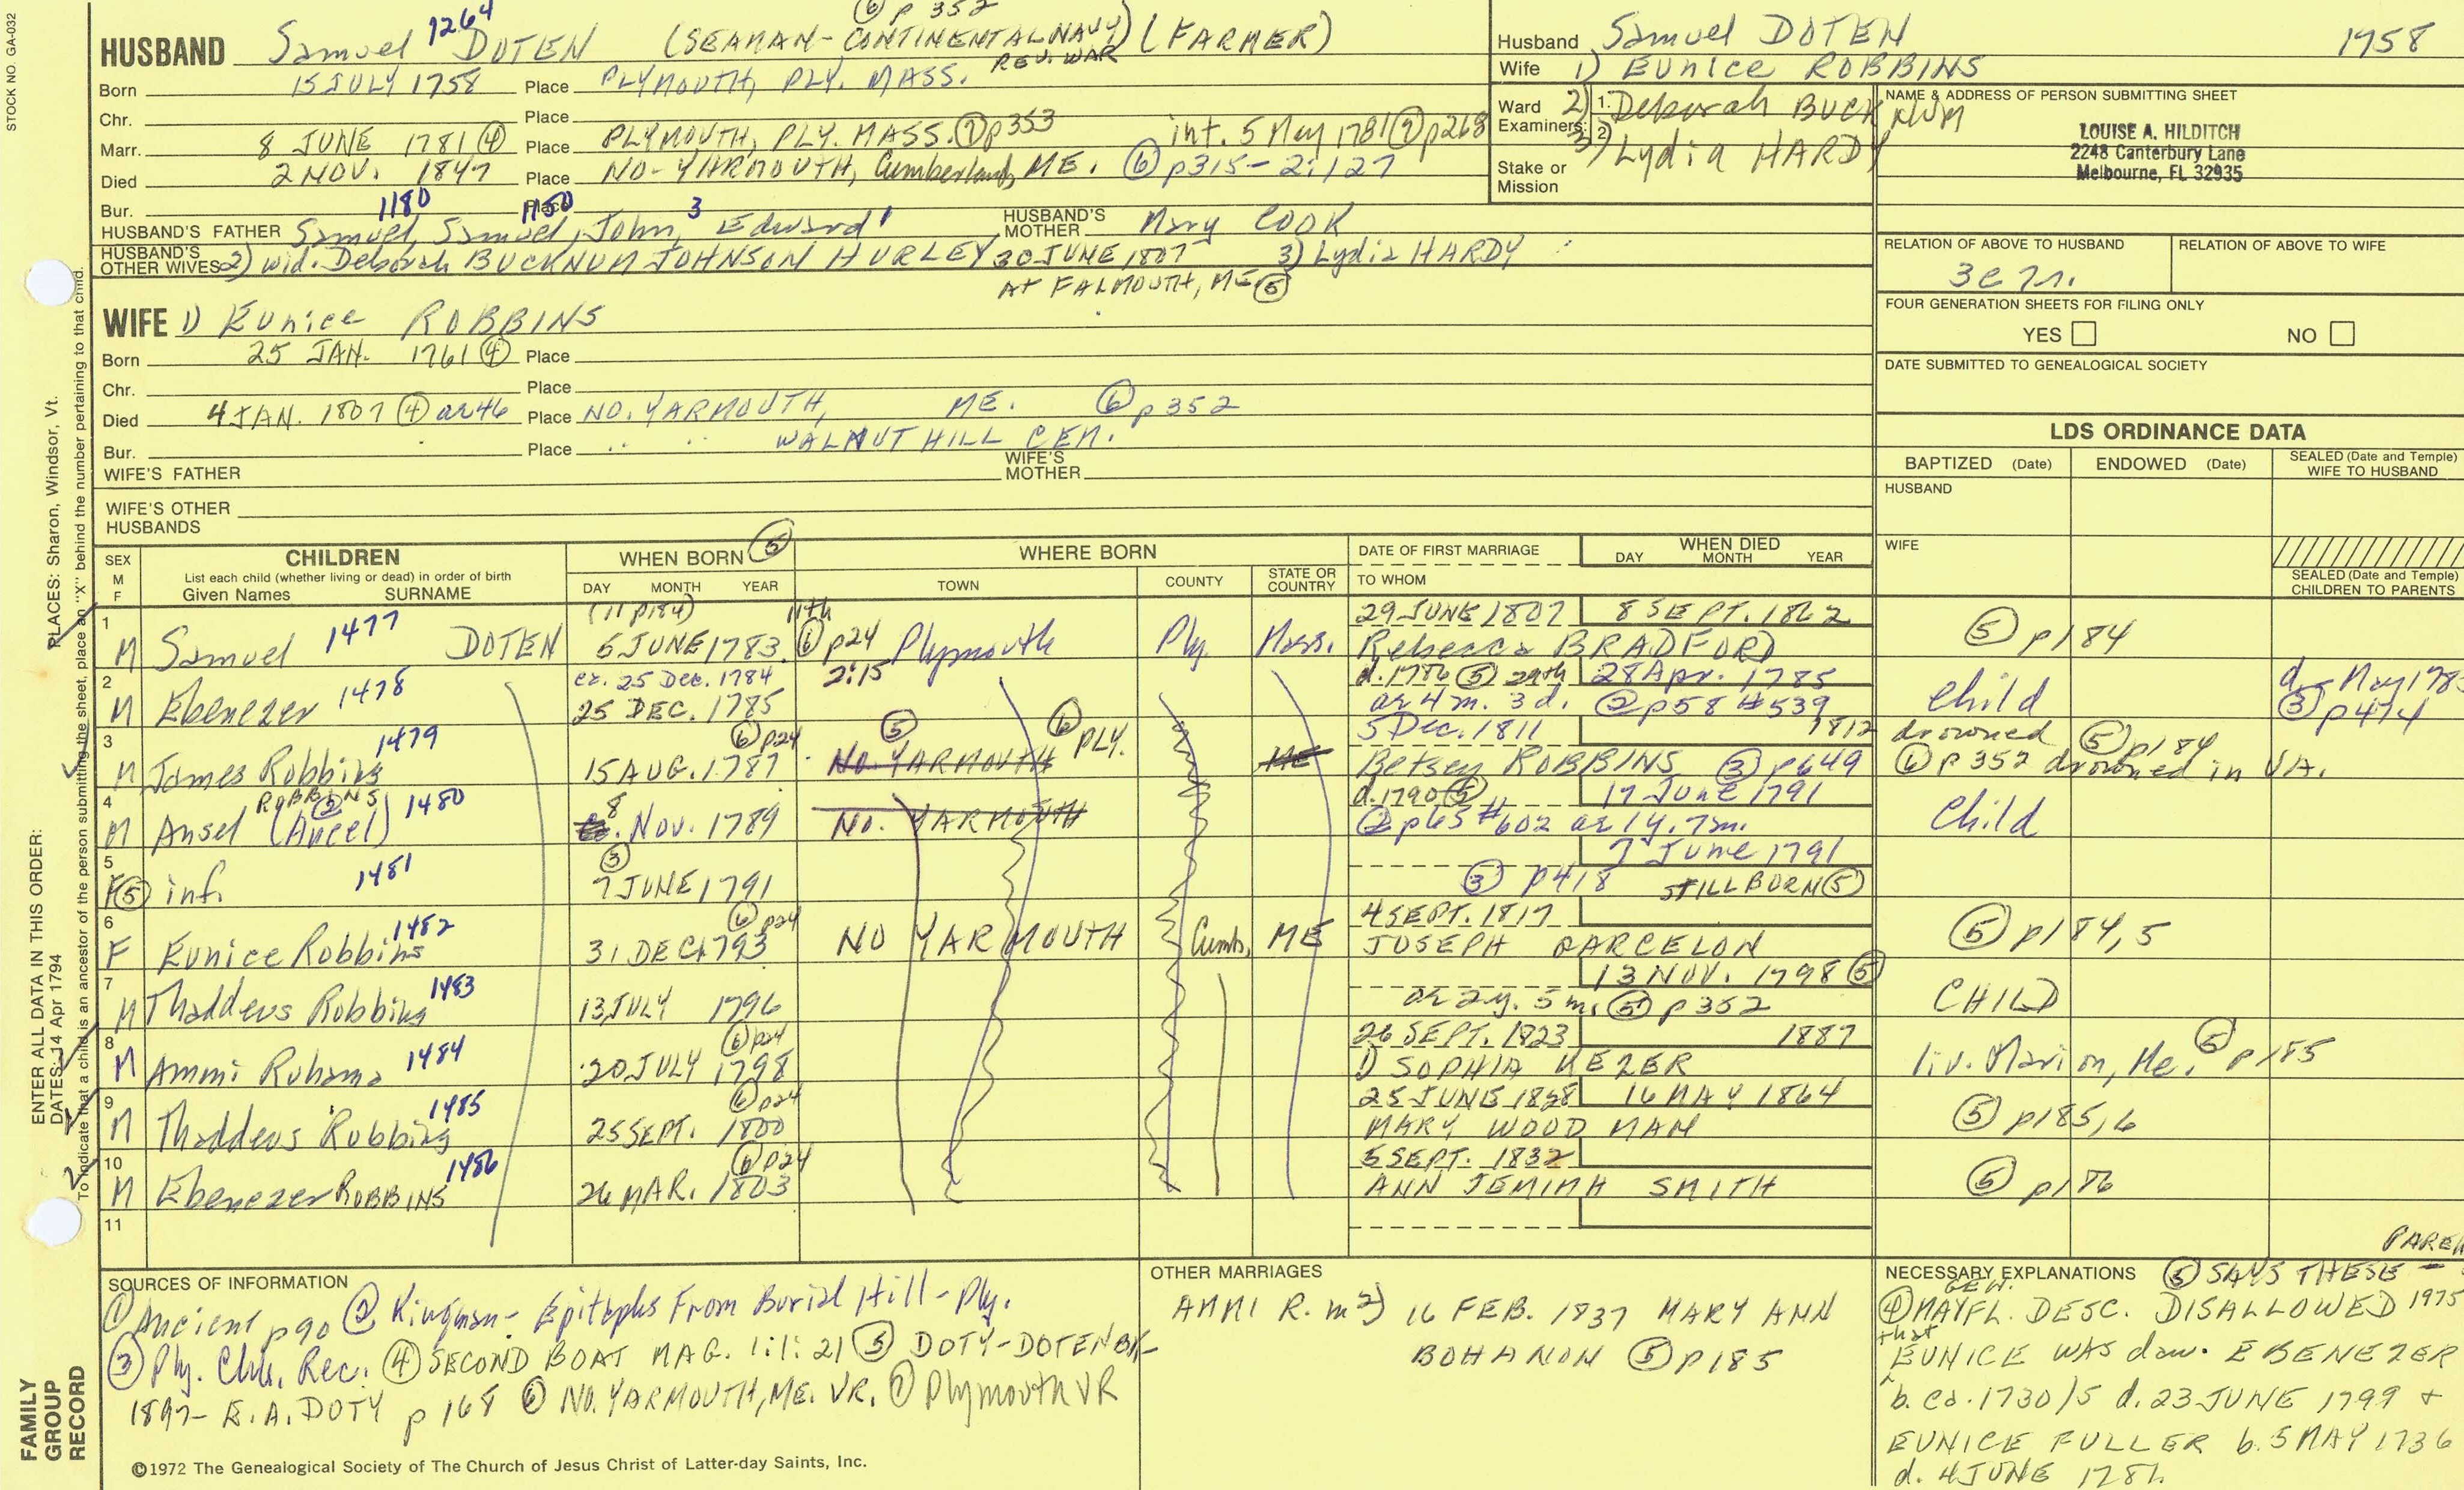 STOCK NO. GA-032
⑥ p 352
HUSBAND Samuel 1264 DOTEN (SEAMAN - CONTINENTAL NAVY) (FARMER)
REV. WAR
Born 15 JULY 1758 Place PLYMOUTH, PLY. MASS.
Chr. Place
Marr. 8 JUNE 1781 ④ Place PLYMOUTH, PLY. MASS. ⑦ p353 int. 5 May 1781 ⑦ p268
Died 2 NOV. 1847 Place NO. YARMOUTH, Cumberland, ME. ⑥ p315 - 2:127
Bur. Place
1180 1150 3 1
HUSBAND'S FATHER Samuel, Samuel, John, Edward HUSBAND'S MOTHER Mary COOK
HUSBAND'S OTHER WIVES 2) wid. Deborah BUCKNUM JOHNSON HURLEY 30 JUNE 1807 3) Lydia HARDY
At FALMOUTH, ME ⑤
Husband Samuel DOTEN 1758
Wife 1) Eunice ROBBINS
Ward Examiners: 1. 2.
2) Deborah BUCKNUM
3) Lydia HARDY
Stake or Mission
NAME & ADDRESS OF PERSON SUBMITTING SHEET
LOUISE A. HILDITCH
2248 Canterbury Lane
Melbourne, FL 32935
RELATION OF ABOVE TO HUSBAND RELATION OF ABOVE TO WIFE
FOUR GENERATION SHEETS FOR FILING ONLY
YES NO
DATE SUBMITTED TO GENEALOGICAL SOCIETY
WIFE 1) Eunice ROBBINS
Born 25 JAN. 1761 ④ Place
Chr. Place
Died 4 JAN. 1807 ④ ae 46 Place NO. YARMOUTH, ME. ⑥ p352
Bur. Place " " WALNUT HILL CEM.
WIFE'S FATHER WIFE'S MOTHER
WIFE'S OTHER HUSBANDS
LDS ORDINANCE DATA
BAPTIZED (Date) ENDOWED (Date) SEALED (Date and Temple) WIFE TO HUSBAND
HUSBAND
WIFE
SEALED (Date and Temple) CHILDREN TO PARENTS
SEX M F CHILDREN WHEN BORN ⑤ WHERE BORN DATE OF FIRST MARRIAGE WHEN DIED
List each child (whether living or dead) in order of birth
Given Names SURNAME DAY MONTH YEAR TOWN COUNTY STATE OR COUNTRY TO WHOM DAY MONTH YEAR
1 (11 p184) 11th 29 JUNE 1807 8 SEPT. 1862
M Samuel 1477 DOTEN 5 JUNE 1783 ⑥ p24 2:15 Plymouth Ply. Mass. Rebecca BRADFORD ⑤ p184
2 ca. 25 Dec. 1784 d. 1786 ⑤ 29th 28 Apr. 1785
M Ebenezer 1478 25 DEC. 1785 ae 4 m. 3 d. ② p58 #539 child d. May 1785 ③ p474
3 ⑥ p24 ⑤ ⑥ PLY. 5 Dec. 1811 1812 drowned ⑤ p184
M James Robbins 1479 15 AUG. 1787 NO. YARMOUTH ME Betsey ROBBINS ③ p649 ⑥ p352 drowned in VA.
4 ROBBINS ② d. 1790 ⑤ 17 June 1791
M Ansel (Ancel) 1480 8 Nov. 1789 NO. YARMOUTH ② p65 #602 ae 1y. 7m. child
5 ③ 7 June 1791
F ⑤ inf. 1481 7 JUNE 1791 ③ p418 STILLBORN ⑤
6 ⑥ p24 4 SEPT. 1817
F Eunice Robbins 1482 31 DEC 1793 NO YARMOUTH Cumb. ME JOSEPH BARCELON ⑤ p184,5
7 13 NOV. 1798 ⑤
M Thaddeus Robbins 1483 13 JULY 1796 ae 2y. 5 m. ⑤ p352 CHILD
8 ⑥ p24 26 SEPT. 1823 1887
M Ammi Ruhama 1484 20 JULY 1798 1) SOPHIA KEZER liv. Marion, Me. ⑤ p185
9 ⑥ p24 25 JUNE 1828 16 MAY 1864
M Thaddeus Robbins 1485 25 SEPT. 1800 MARY WOODMAN ⑤ p185,6
10 ⑥ p24 5 SEPT. 1832
M Ebenezer ROBBINS 1486 26 MAR. 1803 ANN JEMIMA SMITH ⑤ p186
11
SOURCES OF INFORMATION
① Ancient p90 ② Kingman - Epitaphs From Burial Hill - Ply.
③ Ply. Chh. Rec. ④ SECOND BOAT MAG. 1:1:21 ⑤ DOTY-DOTEN BK-
1897 - E.A. DOTY p168 ⑥ NO. YARMOUTH, ME. VR. ⑦ Plymouth VR
©1972 The Genealogical Society of The Church of Jesus Christ of Latter-day Saints, Inc.
OTHER MARRIAGES
AMMI R. m 2) 16 FEB. 1837 MARY ANN
BOHANON ⑤ p185
NECESSARY EXPLANATIONS ⑤ SAYS THESE PAREN
④ GEN. MAYFL. DESC. DISALLOWED 1975
that EUNICE WAS dau. EBENEZER
b. ca. 1730/5 d. 23 JUNE 1799 +
EUNICE FULLER b. 5 MAY 1736
d. 4 JUNE
PLACES: Sharon, Windsor, Vt.
To indicate that a child is an ancestor of the person submitting the sheet, place an "X" behind the number pertaining to that child.
ENTER ALL DATA IN THIS ORDER:
DATES: 14 Apr 1794
FAMILY GROUP RECORD